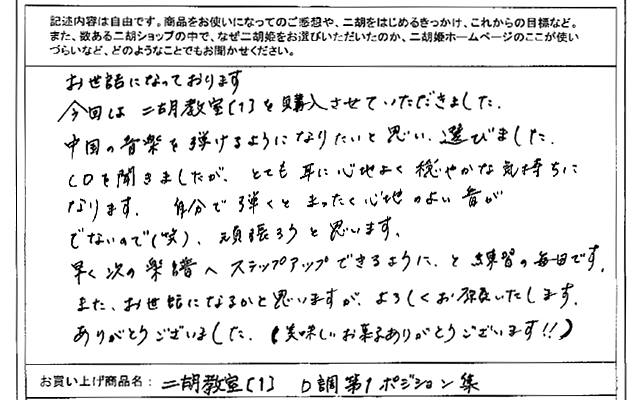 記述内容は自由です。商品をお使いになってのご感想や、二胡をはじめるきっかけ、これからの目標など。
また、数ある二胡ショップの中で、なぜ二胡姫をお選びいただいたのか、二胡姫ホームページのここが使い
づらいなど、どのようなことでもお聞かせください。
お世話になっております
今回は 二胡教室[1]を購入させていただきました.
中国の音楽を弾けるようになりたいと思い、選びました.
CDを聞きましたが、とても耳に心地よく穏やかな気持ちに
なります. 自分で弾くとまったく心地のよい音が
でないので(笑)、頑張ろうと思います.
早く次の楽譜へステップアップできるように、と練習の毎日です.
また、お世話になるかと思いますが、よろしくお願いいたします.
ありがとうございました. (美味しいお菓子ありがとうございます!!)
お買い上げ商品名： 二胡教室[1] D調第1ポジション集